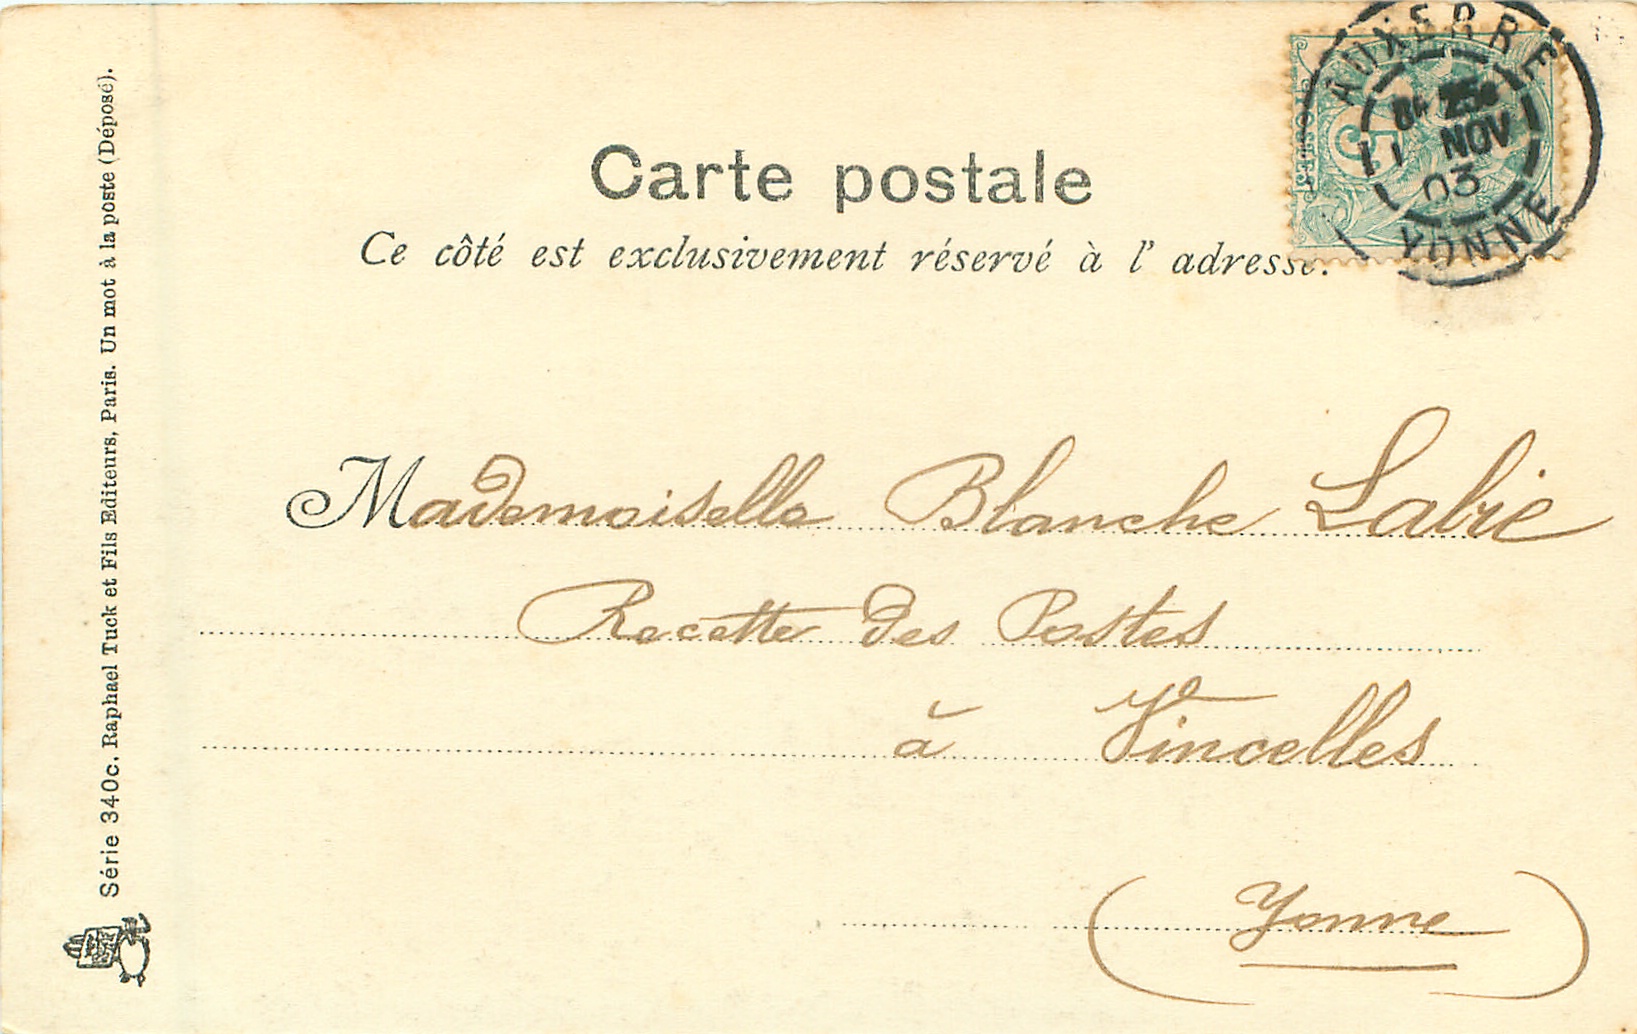 Carte postale
Ce côté est exclusivement réservé à l' adresse.
AUXERRE
NOV
03
YONNE
5
Mademoiselle Blanche Labie
Recette des Postes
à Vincelles
(Yonne)
Série 340c. Raphael Tuck et Fils Editeurs, Paris. Un mot à la poste (Déposé).